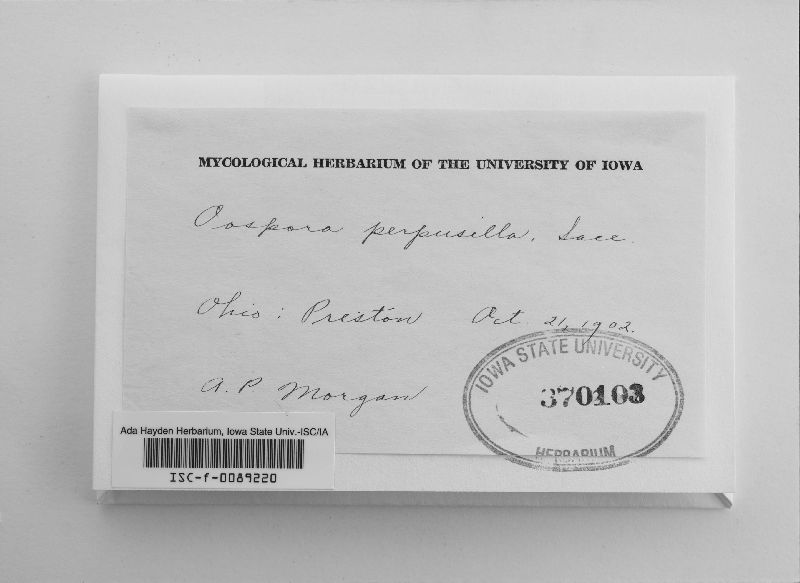 MYCOLOGICAL HERBARIUM OF THE UNIVERSITY OF IOWA
Oospora perpusilla, Sacc.
Ohio : Preston Oct. 21, 1902.
A. P. Morgan
IOWA STATE UNIVERSITY
370103
HERBARIUM
Ada Hayden Herbarium, Iowa State Univ.-ISC/IA
ISC-f-0089220